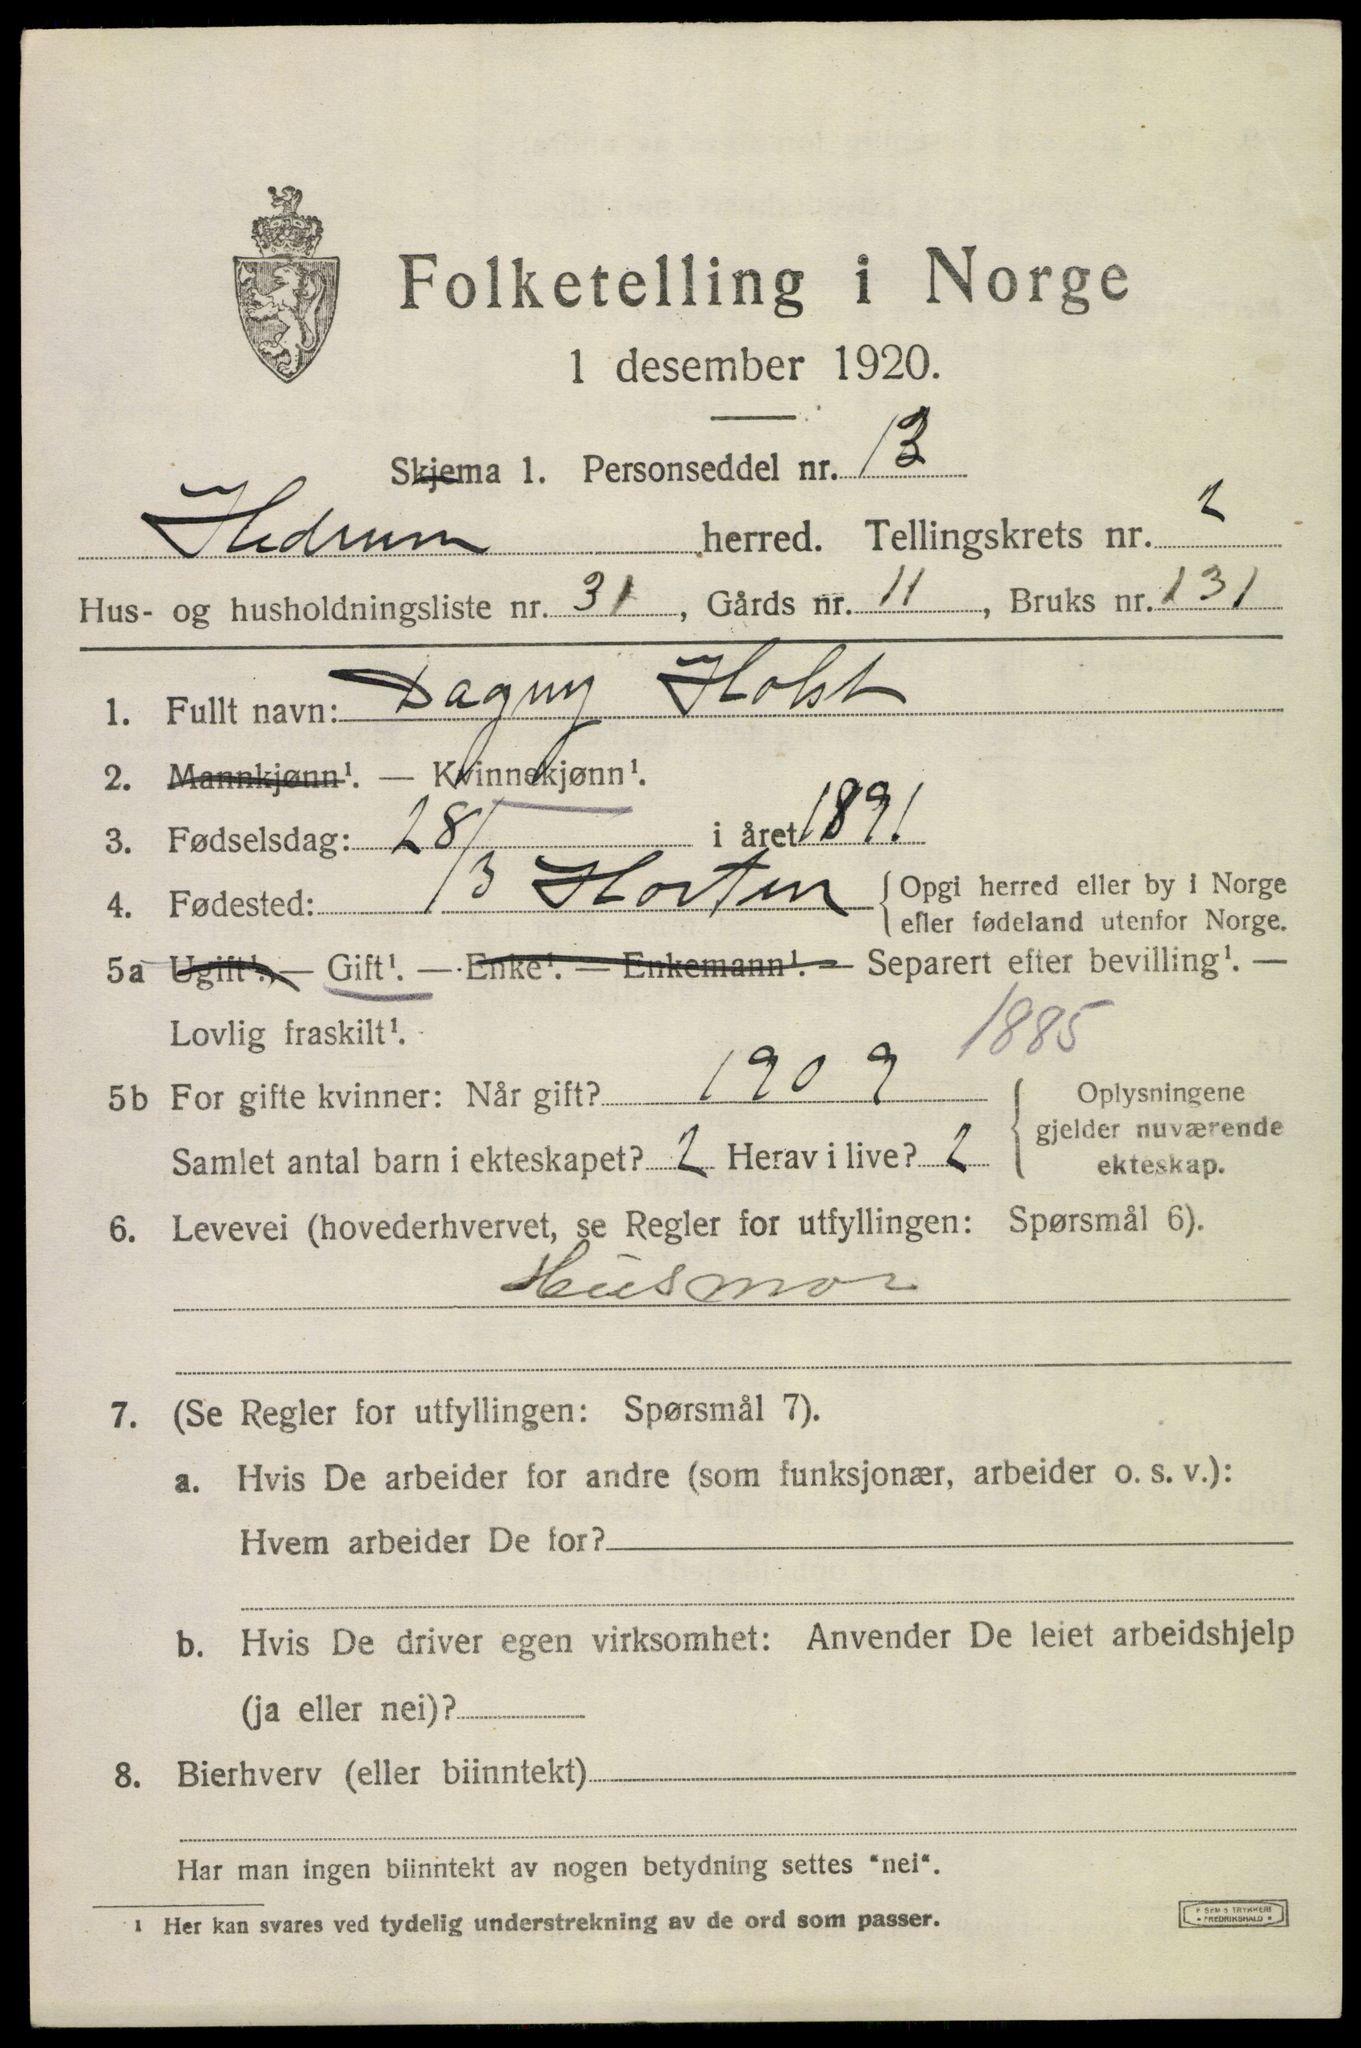 Folketelling i Norge
1 desember 1920.
Skjema 1. Personseddel nr. 13
Hedrum herred. Tellingskrets nr. 2
Hus- og husholdningsliste nr. 31, Gårds nr. 11, Bruks nr. 131
1. Fullt navn: Dagny Holst
2. Mannkjønn¹. — Kvinnekjønn¹.
3. Fødselsdag: 28/3 i året 1891
4. Fødested: Horten {Opgi herred eller by i Norge
eller fødeland utenfor Norge.
5a Ugift¹. — Gift¹. — Enke¹. — Enkemann¹. — Separert efter bevilling¹. —
Lovlig fraskilt¹.
1885
5b For gifte kvinner: Når gift? 1909 { Oplysningene
gjelder nuværende
Samlet antal barn i ekteskapet? 2 Herav i live? 2 ekteskap.
6. Levevei (hovederhvervet, se Regler for utfyllingen: Spørsmål 6).
Husmor
7. (Se Regler for utfyllingen: Spørsmål 7).
a. Hvis De arbeider for andre (som funksjonær, arbeider o. s. v.):
Hvem arbeider De for?
b. Hvis De driver egen virksomhet: Anvender De leiet arbeidshjelp
(ja eller nei)?
8. Bierhverv (eller biinntekt)
Har man ingen biinntekt av nogen betydning settes "nei".
1 Her kan svares ved tydelig understrekning av de ord som passer.
SEM'S TRYKKERI
* FREDRIKSHALD *